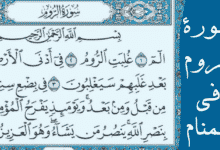 سُورَةُ الرُّومِ
بِسْمِ اللَّهِ الرَّحْمَٰنِ الرَّحِيمِ
الٓمٓ ١ غُلِبَتِ الرُّومُ ٢ فِي أَدْنَى الْأَرْ
بَعْدِ غَلَبِهِمْ سَيَغْلِبُونَ ٣ فِي بِضْعِ
مِن قَبْلُ وَمِن بَعْدُ وَيَوْمَئِذٍ يَفْرَحُ
بِنَصْرِ اللَّهِ يَنصُرُ مَن يَشَاءُ وَهُوَ الْعَزِيزُ
ورة
روم
فى
منام